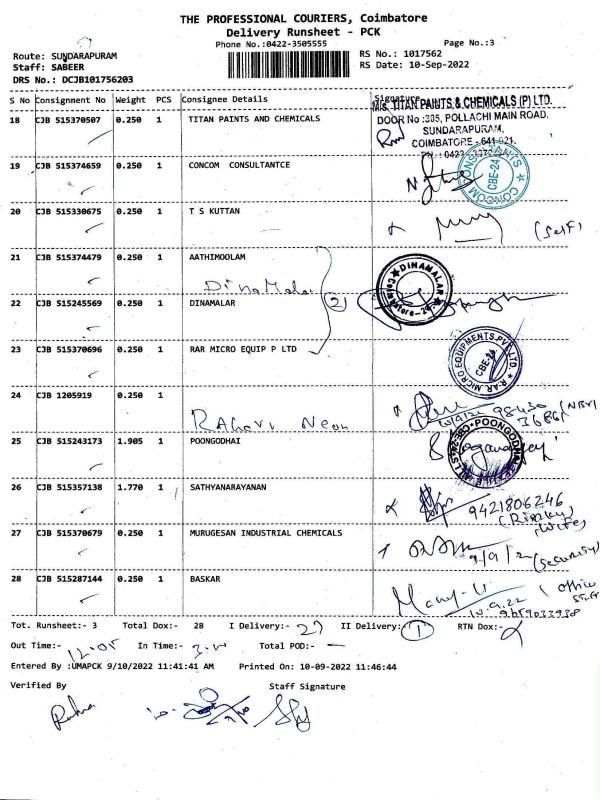 THE PROFESSIONAL COURIERS, Coimbatore
Delivery Runsheet - PCK
Phone No.:0422-3505555
Page No.:3
Route: SUNDARAPURAM
RS No.: 1017562
Staff: SABEER
RS Date: 10-Sep-2022
DRS No.: DCJB101756203
S No Consignment No Weight PCS Consignee Details Signature
M/s. TITAN PAINTS & CHEMICALS (P) LTD.
18 CJB 515370507 0.250 1 TITAN PAINTS AND CHEMICALS
DOOR No :305, POLLACHI MAIN ROAD,
SUNDARAPURAM,
COIMBATORE - 641 021.
19 CJB 515374659 0.250 1 CONCOM CONSULTANTCE
CBE-24
20 CJB 515330675 0.250 1 T S KUTTAN
(Self)
21 CJB 515374479 0.250 1 AATHIMOOLAM
Dinamalar
DINAMALAR
Coimbatore-24
22 CJB 515245569 0.250 1 DINAMALAR
2
23 CJB 515370696 0.250 1 RAR MICRO EQUIP P LTD
R.A.R. MICRO EQUIPMENTS PVT. LTD.
CBE-24
24 CJB 1205919 0.250 1
25 CJB 515243173 1.905 1 POONGODHAI
26 CJB 515357138 1.770 1 SATHYANARAYANAN
9421806246
wife
27 CJB 515370679 0.250 1 MURUGESAN INDUSTRIAL CHEMICALS
(security)
28 CJB 515287144 0.250 1 BASKAR
office
staff
10.9.22
Tot. Runsheet:- 3 Total Dox:- 28 I Delivery:- 27 II Delivery:- 1 RTN Dox:-
Out Time:- 12.05 In Time:- Total POD:- -
Entered By :UMAPCK 9/10/2022 11:41:41 AM Printed On: 10-09-2022 11:46:44
Verified By Staff Signature